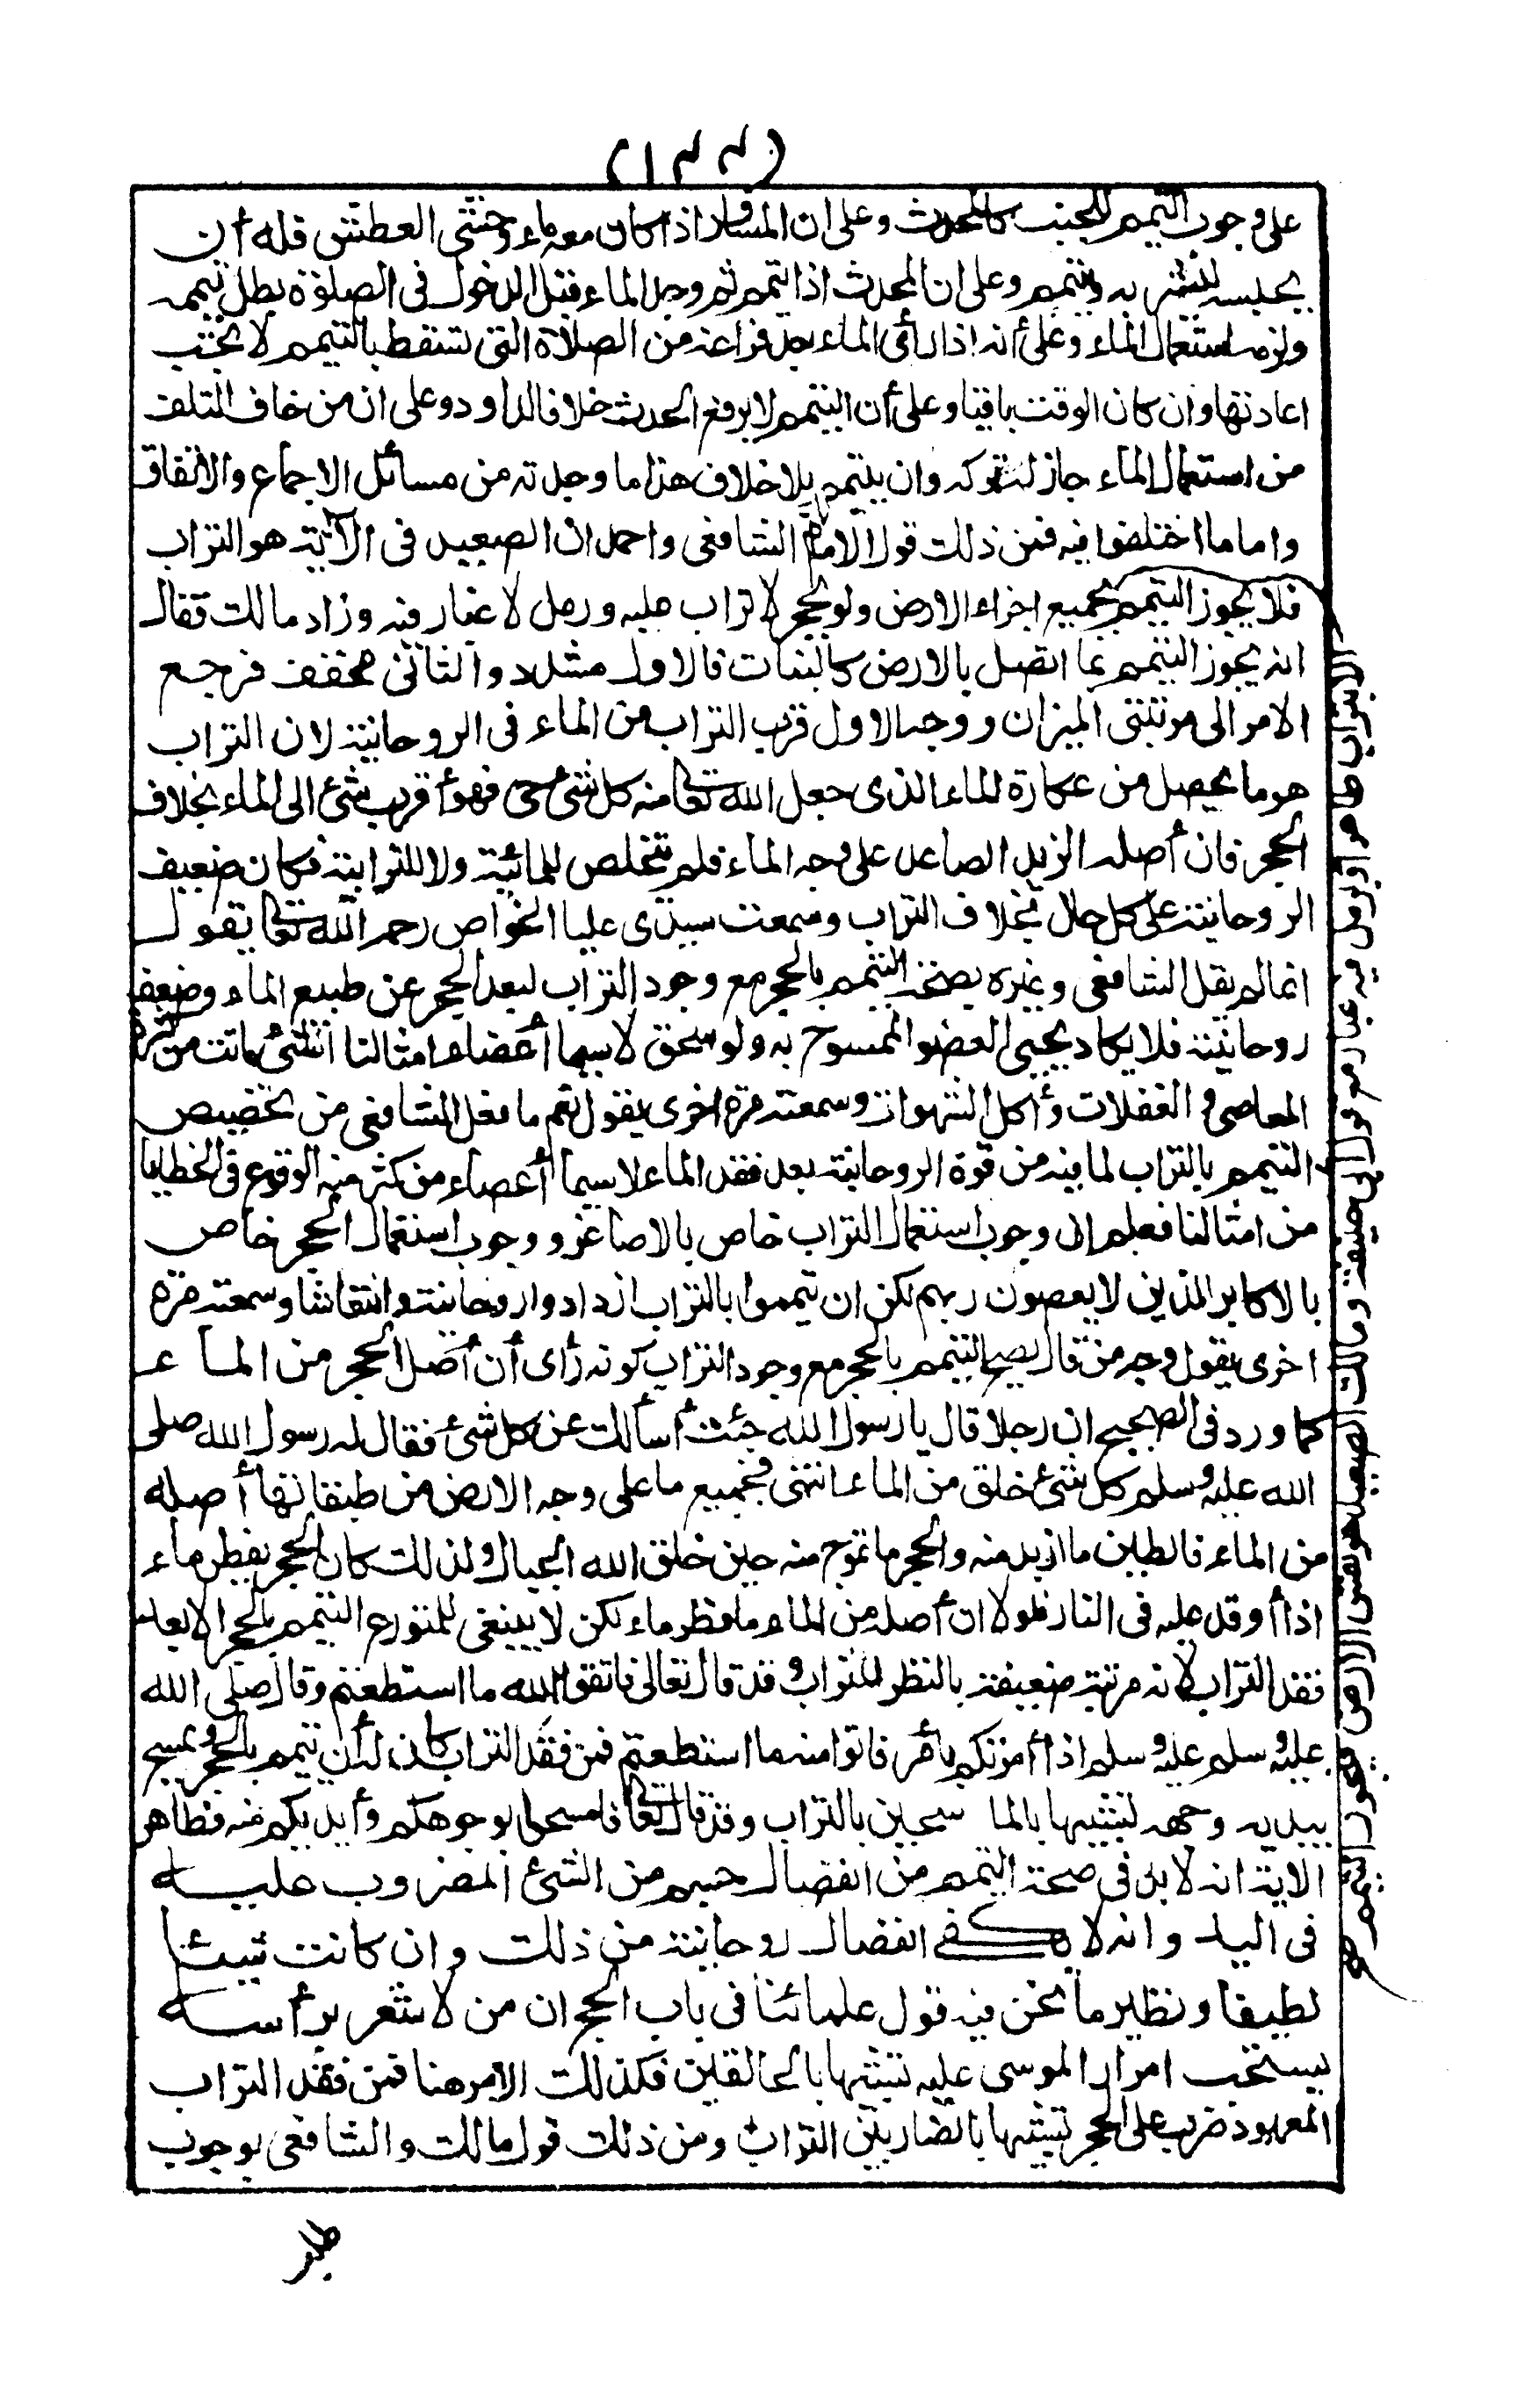 (١٣٣)
على وجوب التيمم للجنب كالمحدث وعلى ان المسافر اذا كان معه ماء وخشى العطش فله أن
يحبسه لشربه ويتيمم وعلى ان المحدث اذا تيمم ثم وجد الماء قبل الدخول فى الصلوة بطل تيممه
ولزمه استعمال الماء وعلى أنه اذا رأى الماء بعد فراغه من الصلاة التى تسقط بالتيمم لا يجب
اعادتها وان كان الوقت باقيا وعلى أن التيمم لا يرفع الحدث خلافا لداود وعلى ان من خاف التلف
من استعمال الماء جاز له تركه وان يتيمم بلا خلاف هذا ما وجدته من مسائل الاجماع والاتفاق
واما ما اختلفوا فيه فمن ذلك قول الامام الشافعى واحمد ان الصعيد فى الآية هو التراب
فلا يجوز التيمم بجميع اجزاء الارض ولو بحجر لا تراب عليه ورمل لا غبار فيه وزاد مالك فقال
انه يجوز التيمم بما اتصل بالارض كالنبات فالاول مشدد والثانى مخفف فرجع
الامر الى مرتبتى الميزان ووجه الاول قرب التراب من الماء فى الروحانية لان التراب
هو ما يحصل من عكارة الماء الذى جعل الله تعا منه كل شئ حى فهو أقرب شئ الى الماء بخلاف
الحجر فان أصله الزبد الصاعد على وجه الماء فلم يتخلص للمائية ولا للترابية فكان ضعيف
الروحانية على كل حال بخلاف التراب وسمعت سيدى عليا الخواص رحمه الله تعا يقول
انما لم يقل الشافعى وغيره بصحة التيمم بالحجر مع وجود التراب لبعد الحجر عن طبع الماء وضعف
روحانيته فلا يكاد يحيى العضو الممسوح به ولو سحق لا سيما أعضاء امثالنا التى ماتت من كثرة
المعاصى و الغفلات وأكل الشهوات وسمعته مرة اخرى يقول نعم ما فعل الشافعى من تخصيص
التيمم بالتراب لما فيه من قوة الروحانية بعد فقد الماء لا سيما أعضاء من كثر منه الوقوع فى الخطايا
من امثالنا فعلم ان وجوب استعمال التراب خاص بالاصاغر ووجوب استعمال الحجر خاص
بالاكابر الذين لا يعصون ربهم لكن ان تيمموا بالتراب ازدادوا روحانية وانتعاشا وسمعته مرة
اخرى يقول وجه من قال يصح التيمم بالحجر مع وجود التراب كونه رأى أن أصل الحجر من الماء
كما ورد فى الصحيح ان رجلا قال يا رسول الله جئت أسألك عن كل شئ فقال له رسول الله صلى
الله عليه وسلم كل شئ خلق من الماء انتهى فجميع ما على وجه الارض من طبقاتها أصله
من الماء فالطين ما ازبد منه والحجر ما تموج منه حين خلق الله الجبال ولذلك كان الحجر يقطر ماء
اذا أوقد عليه فى النار فلولا ان أصله من الماء ما قطر ماء لكن لا ينبغى للمتورع التيمم بالحجر الا بعد
فقد التراب لانه مرتبة ضعيفة بالنظر للتراب وقد قال تعالى فاتقوا الله ما استطعتم وقال صلى الله
عليه وسلم عليه وسلم اذا أمرتكم بأمر فاتوا منه ما استطعتم فمن فقد التراب كان له أن يتيمم بالحجر ويمسح
بيديه وجهه تشبيها بالماسحين بالتراب وقد قال تعا فامسحوا بوجوهكم وأيديكم منه فظاهر
الاية انه لا بد فى صحة التيمم من انفصال جسم من الشئ المضروب عليه
فى اليد وانه لا يكفى انفصال روحانية من ذلك وان كانت شيئا
لطيفا ونظير ما نحن فيه قول علمائنا فى باب الحج ان من لا شعر برأسه
يستحب امرار الموسى عليه تشبها بالحالقين فكذلك الامر هنا فمن فقد التراب
المعهود ضرب على الحجر تشبها بالضاربين التراب ومن ذلك قول مالك والشافعى بوجوب
الا بتراب طاهر أو برمل فيه غبار مع قول ابى حنيفة ومالك الصعيد هو نفس الارض فيجوز التيمم صح
طلب